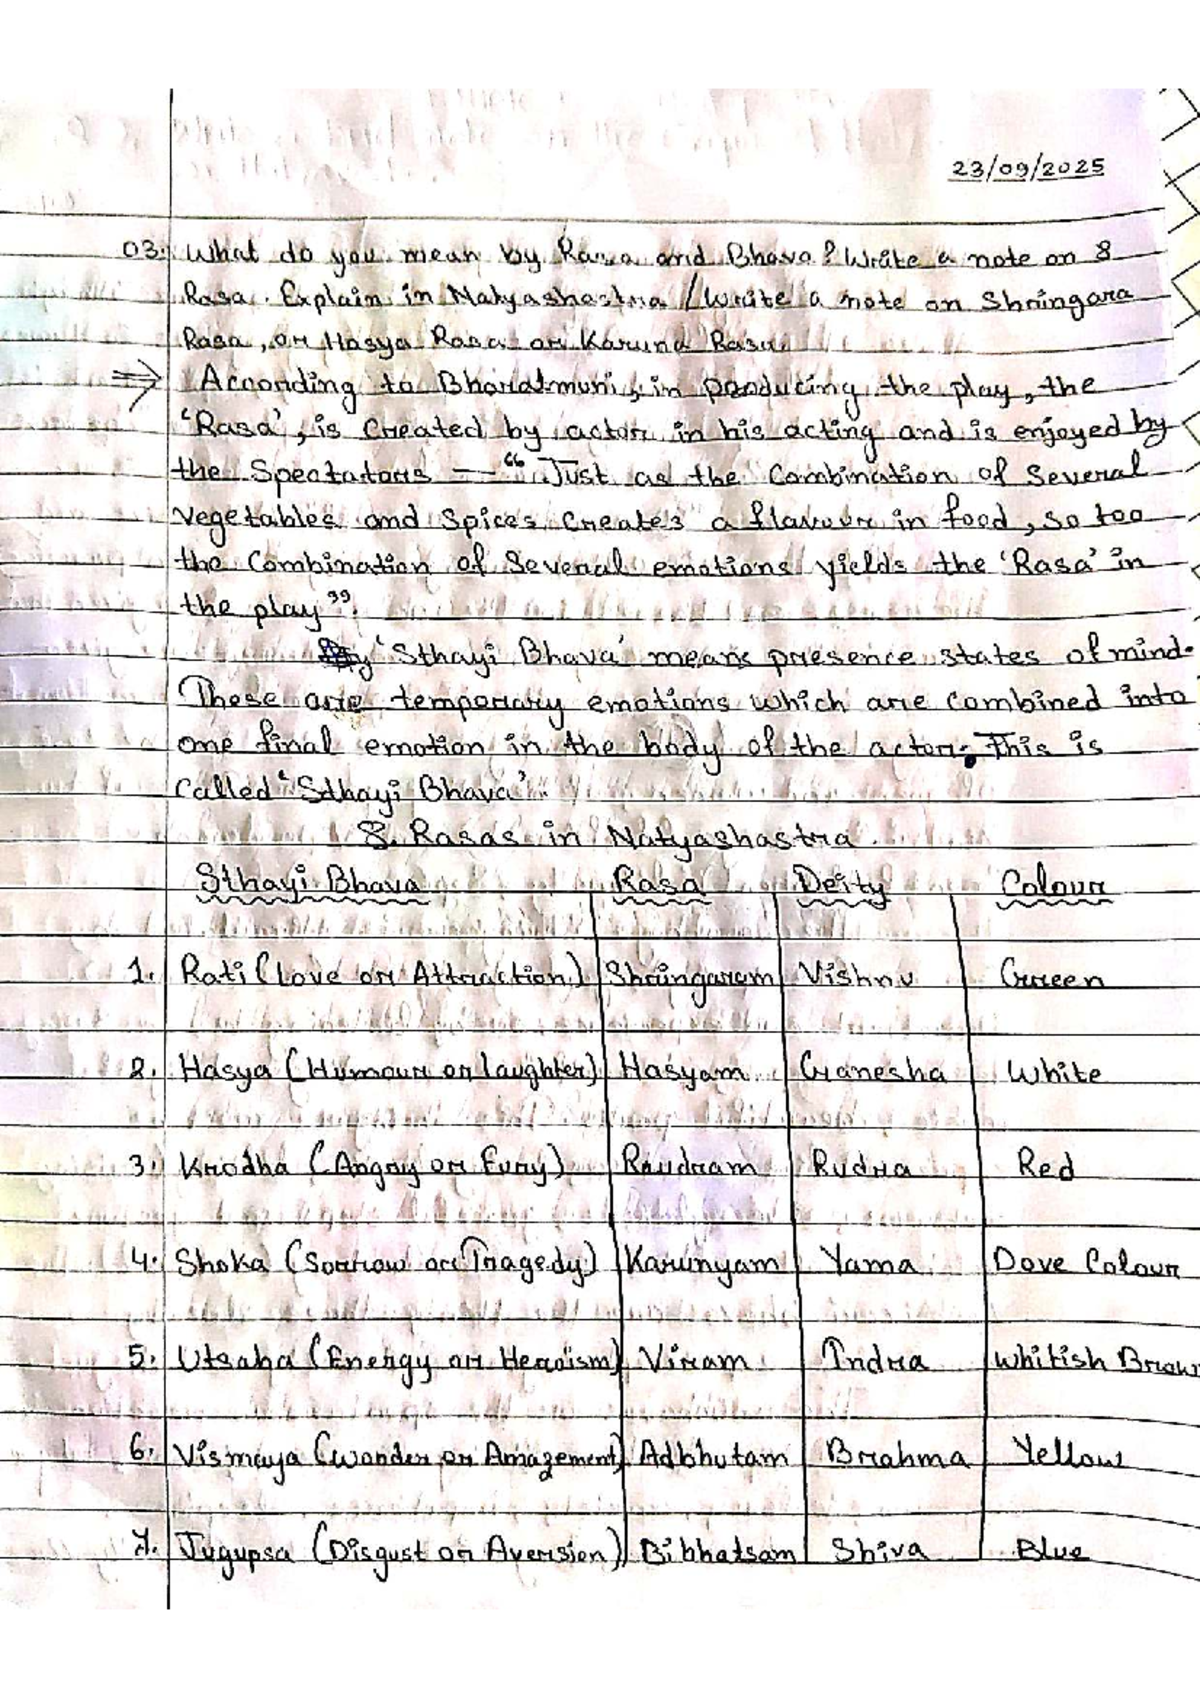 23/09/2025
03. What do you mean by Rasa and Bhava? Write a note on 8
Rasa. Explain in Natyashastra / Write a note on Shringara
Rasa, or Hasya Rasa or Karuna Rasa.
⇒ According to Bharatmuni, in producing the play, the
'Rasa', is created by actor in his acting and is enjoyed by
the Spectators — "Just as the Combination of Several
vegetables and Spices creates a flavour in food, so too
the Combination of Several emotions yields the 'Rasa' in
the play".
'Sthayi Bhava' means presence states of mind.
These are temporary emotions which are combined into
one final emotion in the body of the actor. This is
Called 'Sthayi Bhava'.
8. Rasas in Natyashastra.
Sthayi Bhava Rasa Deity Colour
1. Rati (Love or Attraction) Shringaram Vishnu Green
2. Hasya (Humour or laughter) Hasyam Ganesha White
3. Krodha (Angry or Fury) Raudram Rudra Red
4. Shoka (Sorrow or Tragedy) Karunyam Yama Dove Colour
5. Utsaha (Energy or Heroism) Viram Indra Whitish Brown
6. Vismaya (Wonder or Amazement) Adbhutam Brahma Yellow
7. Jugupsa (Disgust or Aversion) Bibhatsam Shiva Blue